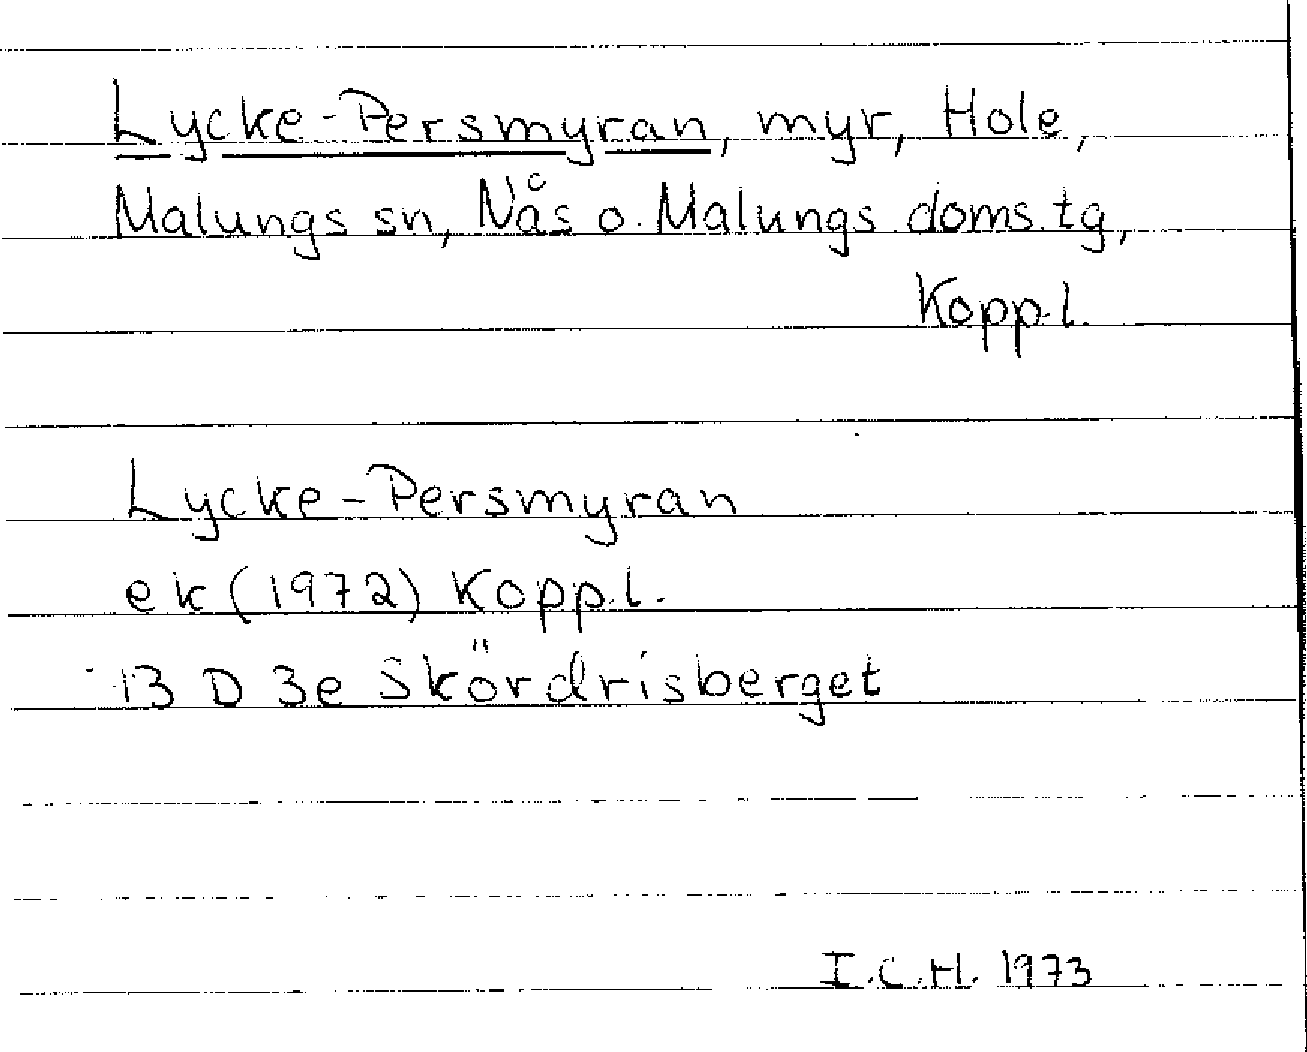 Lycke-Persmyran, myr, Hole,
Malungs sn, Nås o. Malungs doms.tg,
Kopp.l.
Lycke-Persmyran
ek (1972) Kopp.l.
13 D 3e Skördrisberget
I.C.H. 1973